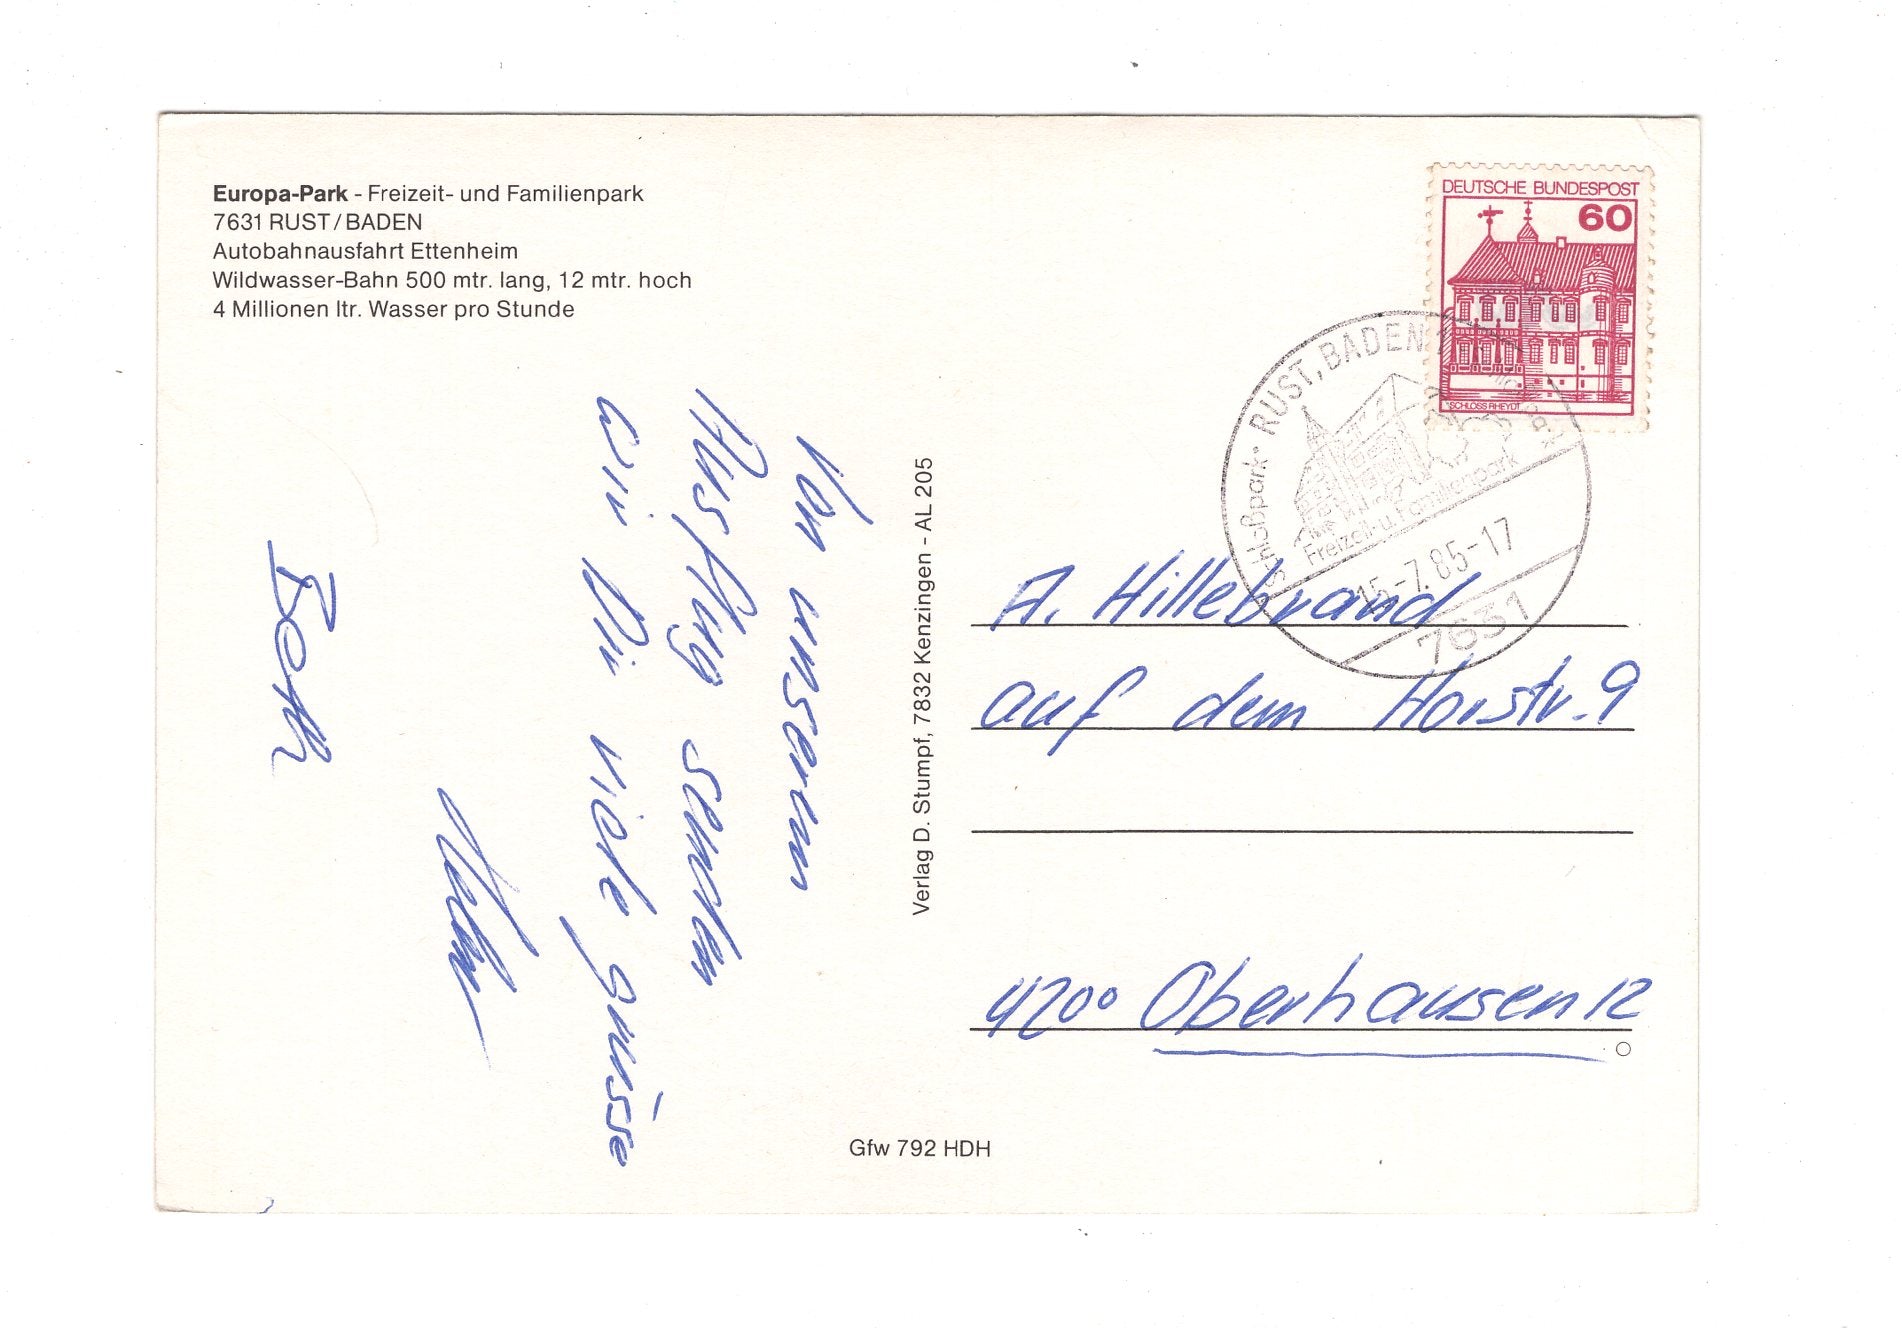 Europa-Park - Freizeit- und Familienpark
7631 RUST/BADEN
Autobahnausfahrt Ettenheim
Wildwasser-Bahn 500 mtr. lang, 12 mtr. hoch
4 Millionen ltr. Wasser pro Stunde
Von unserem
Ausflug senden
wir Dir viele grüsse
Verlag D. Stumpf, 7832 Kenzingen - AL 205
Gfw 792 HDH
DEUTSCHE BUNDESPOST
60
SCHLOSS RHEYDT
RUST, BADEN 1
Schloßpark
Freizeit- u. Familienpark
15.-7.85-17
7631
A. Hillebrand
auf dem Horstr. 9
4200 Oberhausen 12